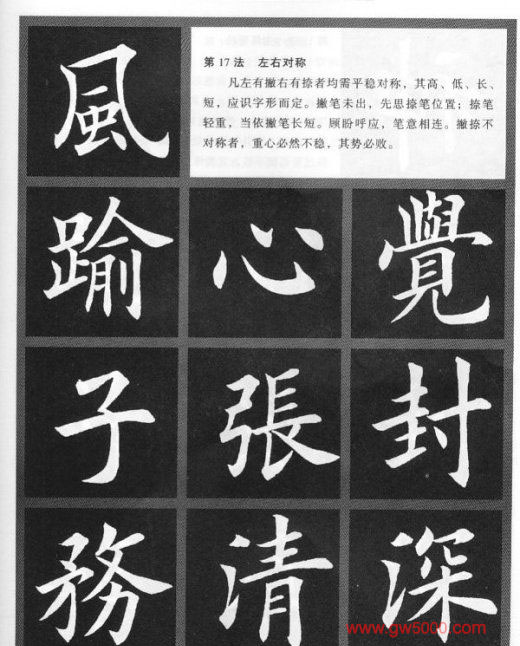 風
第 17 法 左右对称
凡左有撇右有捺者均需平稳对称，其高、低、长、
短，应识字形而定。撇笔未出，先思捺笔位置；捺笔
轻重，当依撇笔长短。顾盼呼应，笔意相连。撇捺不
对称者，重心必然不稳，其势必败。
踰 心 覺
子 張 封
務 清 深
www.gw5000.com